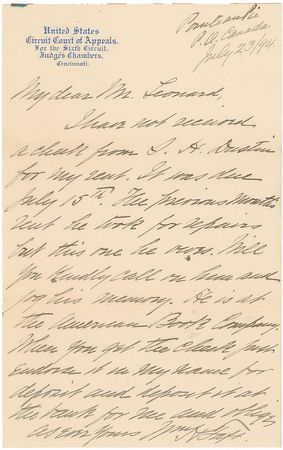 United States
Circuit Court of Appeals.
For the Sixth Circuit.
Judges Chambers,
Cincinnati.
P.Q. Canada
July 23/94
My dear Mr. Leonard,
I have not received
a check from S. H. Dustin
for my rent. It was due
July 15th. The previous month's
rent he took for repairs
but this one he owes. Will
you kindly call on him and
jog his memory. He is at
the American Book Company.
When you get the check just
endorse it in my name for
deposit and deposit it at
the bank for me and oblige
as ever yours Wm H Taft.